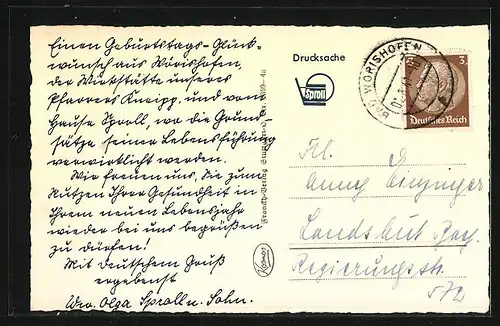 Einen Geburtstags-Glück-
wunsch aus Wörishofen,
der Wirkstätte unseres
Pfarrers Kneipp, und vom
Hause Sproll, wo die Grund-
sätze seiner Lebensführung
verwirklicht werden.
Wir freuen uns, Sie zum
Nutzen Ihrer Gesundheit in
Ihrem neuen Lebensjahr
wieder bei uns begrüßen
zu dürfen!
Mit Deutschem Gruß
ergebenst
Wwe. Olga Sproll u. Sohn.
Franckh-Verlag Stuttgart
Kosmos
Drucksache
Sproll
BAD WÖRISHOFEN
3
3
Deutsches Reich
Frl.
Anny
Landshut Bay.
Regierungsstr.
572